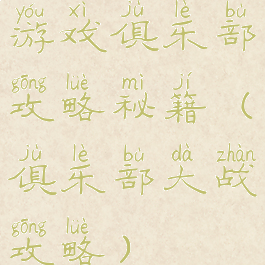 yóu xì jù lè bù
游戏俱乐部
gōng lüè mì jí
攻略秘籍（
jù lè bù dà zhàn
俱乐部大战
gōng lüè
攻略）